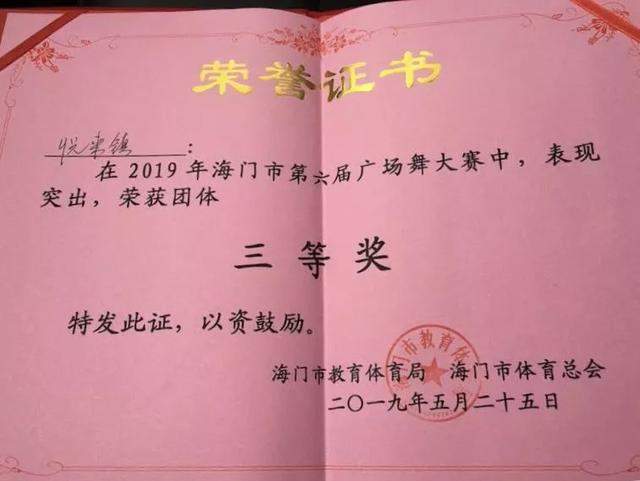 荣誉证书
悦来镇：
在2019年海门市第六届广场舞大赛中，表现
突出，荣获团体
三等奖
特发此证，以资鼓励。
海门市教育体育局 海门市体育总会
二〇一九年五月二十五日
海门市教育体